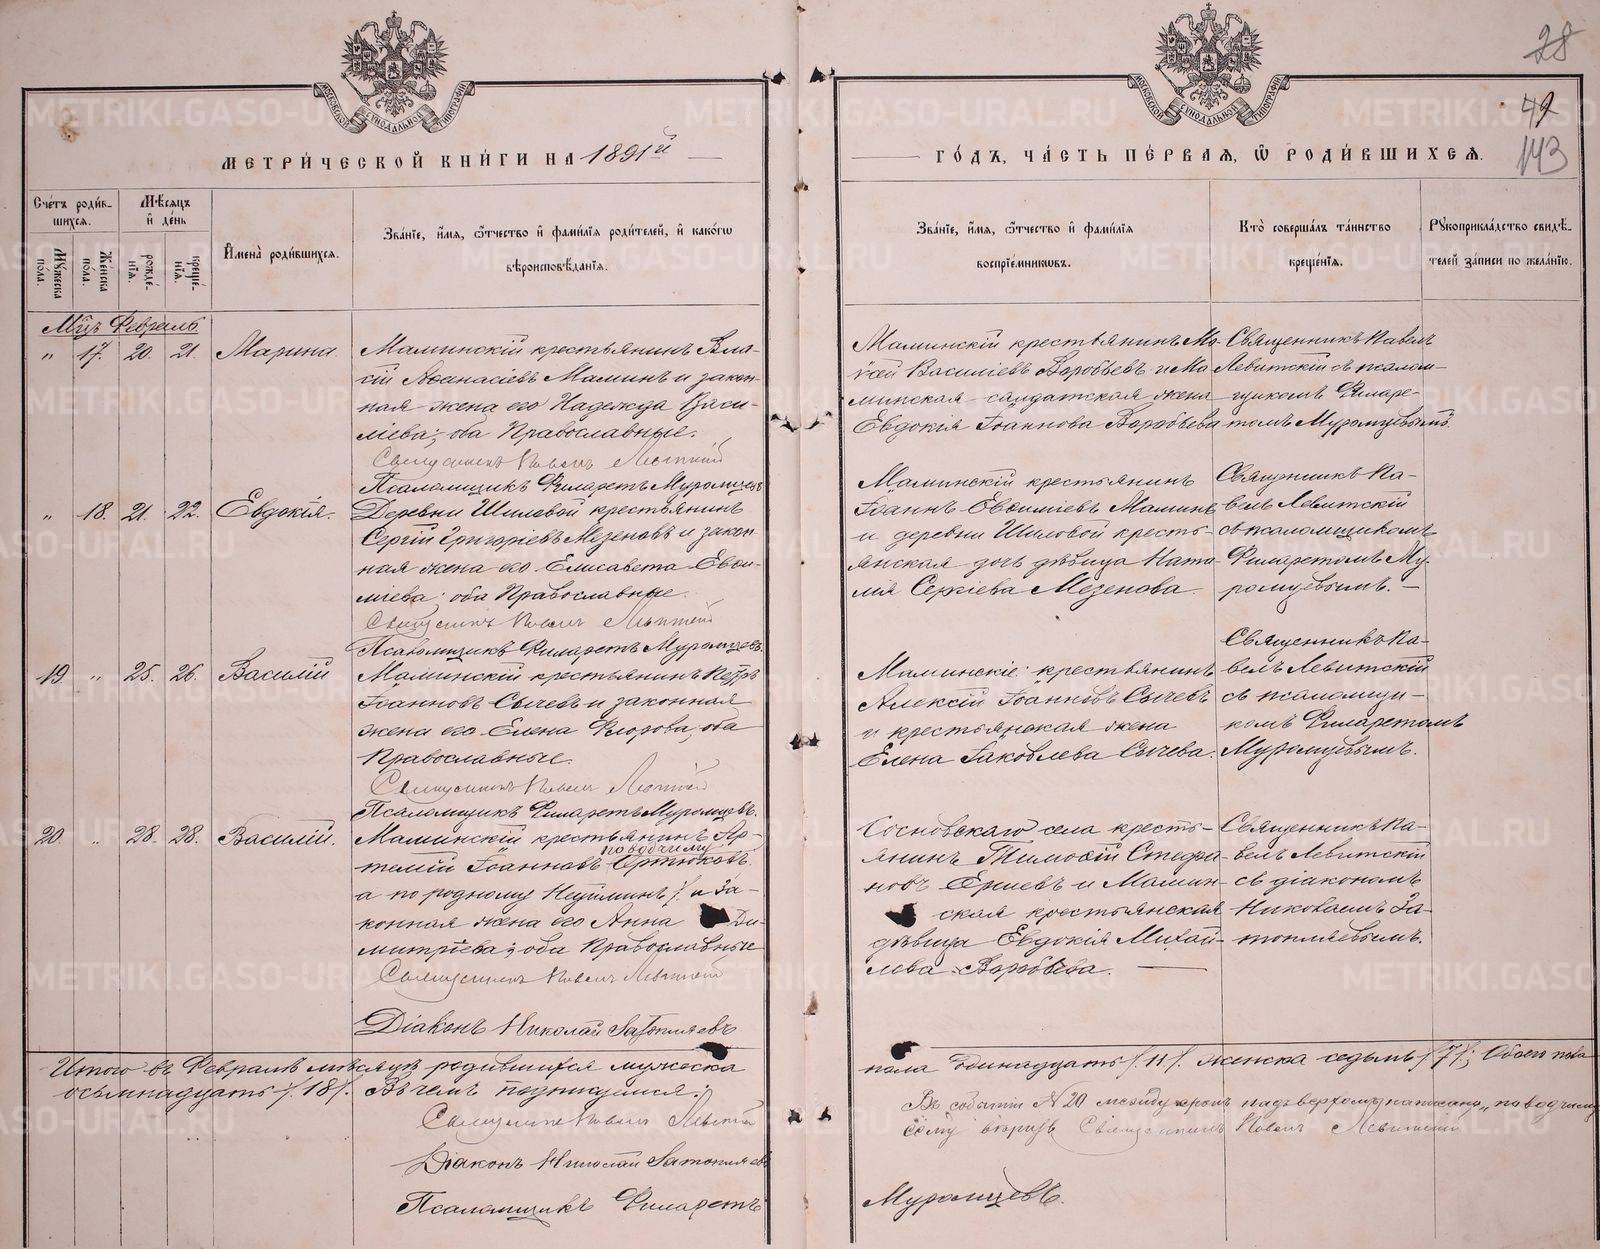 28
49
143
МОСКОВСКОЙ СѴНОДАЛЬНОЙ ТИПОГРАФІИ
МОСКОВСКОЙ СѴНОДАЛЬНОЙ ТИПОГРАФІИ
МЕТРИ́ЧЕСКОЙ КНИ́ГИ НА 1891й
ГО́ДЪ, ЧА́СТЬ ПЕ́РВАЯ, Ѡ РОДИ́ВШИХСЯ.
Сче́тъ роди́в-
шихся.
Мѣ́сяцъ
и де́нь
Мꙋжеска по́ла.
Же́нска по́ла.
рожде́-
нїя.
креще́-
нїя.
Имена̀ роди́вшихся.
Зва́нїе, и́мя, ѻ́тчество и фами́лїя роди́телей, и како́гѡ
вѣроисповѣ́данїя.
Зва́нїе, и́мя, ѻ́тчество и фами́лїя
воспрїе́мниковъ.
Кто̀ соверша́лъ та́инство
креще́нїя.
Рꙋкоприкла́дство свидѣ́-
телей за́писи по жела́нїю.
Мцъ Февраль
" 17. 20. 21. Марина
Маминскій крестьянинъ Вла-
сій Аѳанасіевъ Маминъ и закон-
ная жена его Надежда Васи-
ліева; оба Православные.
Священникъ Павелъ Левитскій
Псаломщикъ Филаретъ Муромцевъ
Маминскій крестьянинъ Мо-
ѵсей Василіевъ Воробьевъ и Ма-
минская солдатская жена
Евдокія Іоаннова Воробьева
Священникъ Павелъ
Левитскій съ псалом-
щикомъ Филаре-
томъ Муромцевымъ.
" 18. 21. 22. Евдокія.
Деревни Шиловой крестьянинъ
Сергій Григоріевъ Мезеновъ и закон-
ная жена его Елисавета Евѳи-
міева; оба Православные.
Священникъ Павелъ Левитскій
Псаломщикъ Филаретъ Муромцевъ.
Маминскій крестьянинъ
Іоаннъ Евѳиміевъ Маминъ
и деревни Шиловой кресть-
янская дочь дѣвица Ната-
лія Сергіева Мезенова
Священникъ Па-
велъ Левитскій
съ псаломщикомъ
Филаретомъ Му-
ромцевымъ. —
19. " 25. 26. Василій
Маминскій крестьянинъ Петръ
Іоанновъ Сычевъ и законная
жена его Елена Ѳеорова, оба
Православные.
Священникъ Павелъ Левитскій
Псаломщикъ Филаретъ Муромцевъ.
Маминскіе: крестьянинъ
Алексій Іоанновъ Сычевъ
и крестьянская жена
Елена Іаковлева Сычева.
Священникъ Па-
велъ Левитскій
съ псаломщи-
комъ Филаретомъ
Муромцевымъ.
20. " 28. 28. Василій.
Маминскій крестьянинъ Ар-
по вотчиму
темій Іоанновъ Ортюковъ
а по родному Неуйминъ /: и за-
конная жена его Анна Ди-
митріева; оба Православные
Священникъ Павелъ Левитскій
Діаконъ Николай Затопляевъ
Сосновскаго села кресть-
янинъ Тимоѳій Стефа-
новъ Екиевъ и Мамин-
ская крестьянская
дѣвица Евдокія Михай-
лова Воробьева. —
Священникъ Па-
велъ Левитскій
съ діакономъ
Николаемъ За-
топляевымъ.
Итого въ Февралѣ мѣсяцѣ родившихся мужеска
пола одинадцать /.11/. женска седьмь /7/; Обоего пола
осьмнадцать /.18/. Въ чемъ подписуемся:
Священникъ Павелъ Левитскій
Діаконъ Николай Затопляевъ
Псаломщикъ Филаретъ
Въ событіи № 20 между строкъ надъ верхомъ написано „по вотчиму"
сему вѣрить Священникъ Павелъ Левитскій
Муромцевъ.
METRIKI.GASO-URAL.RU